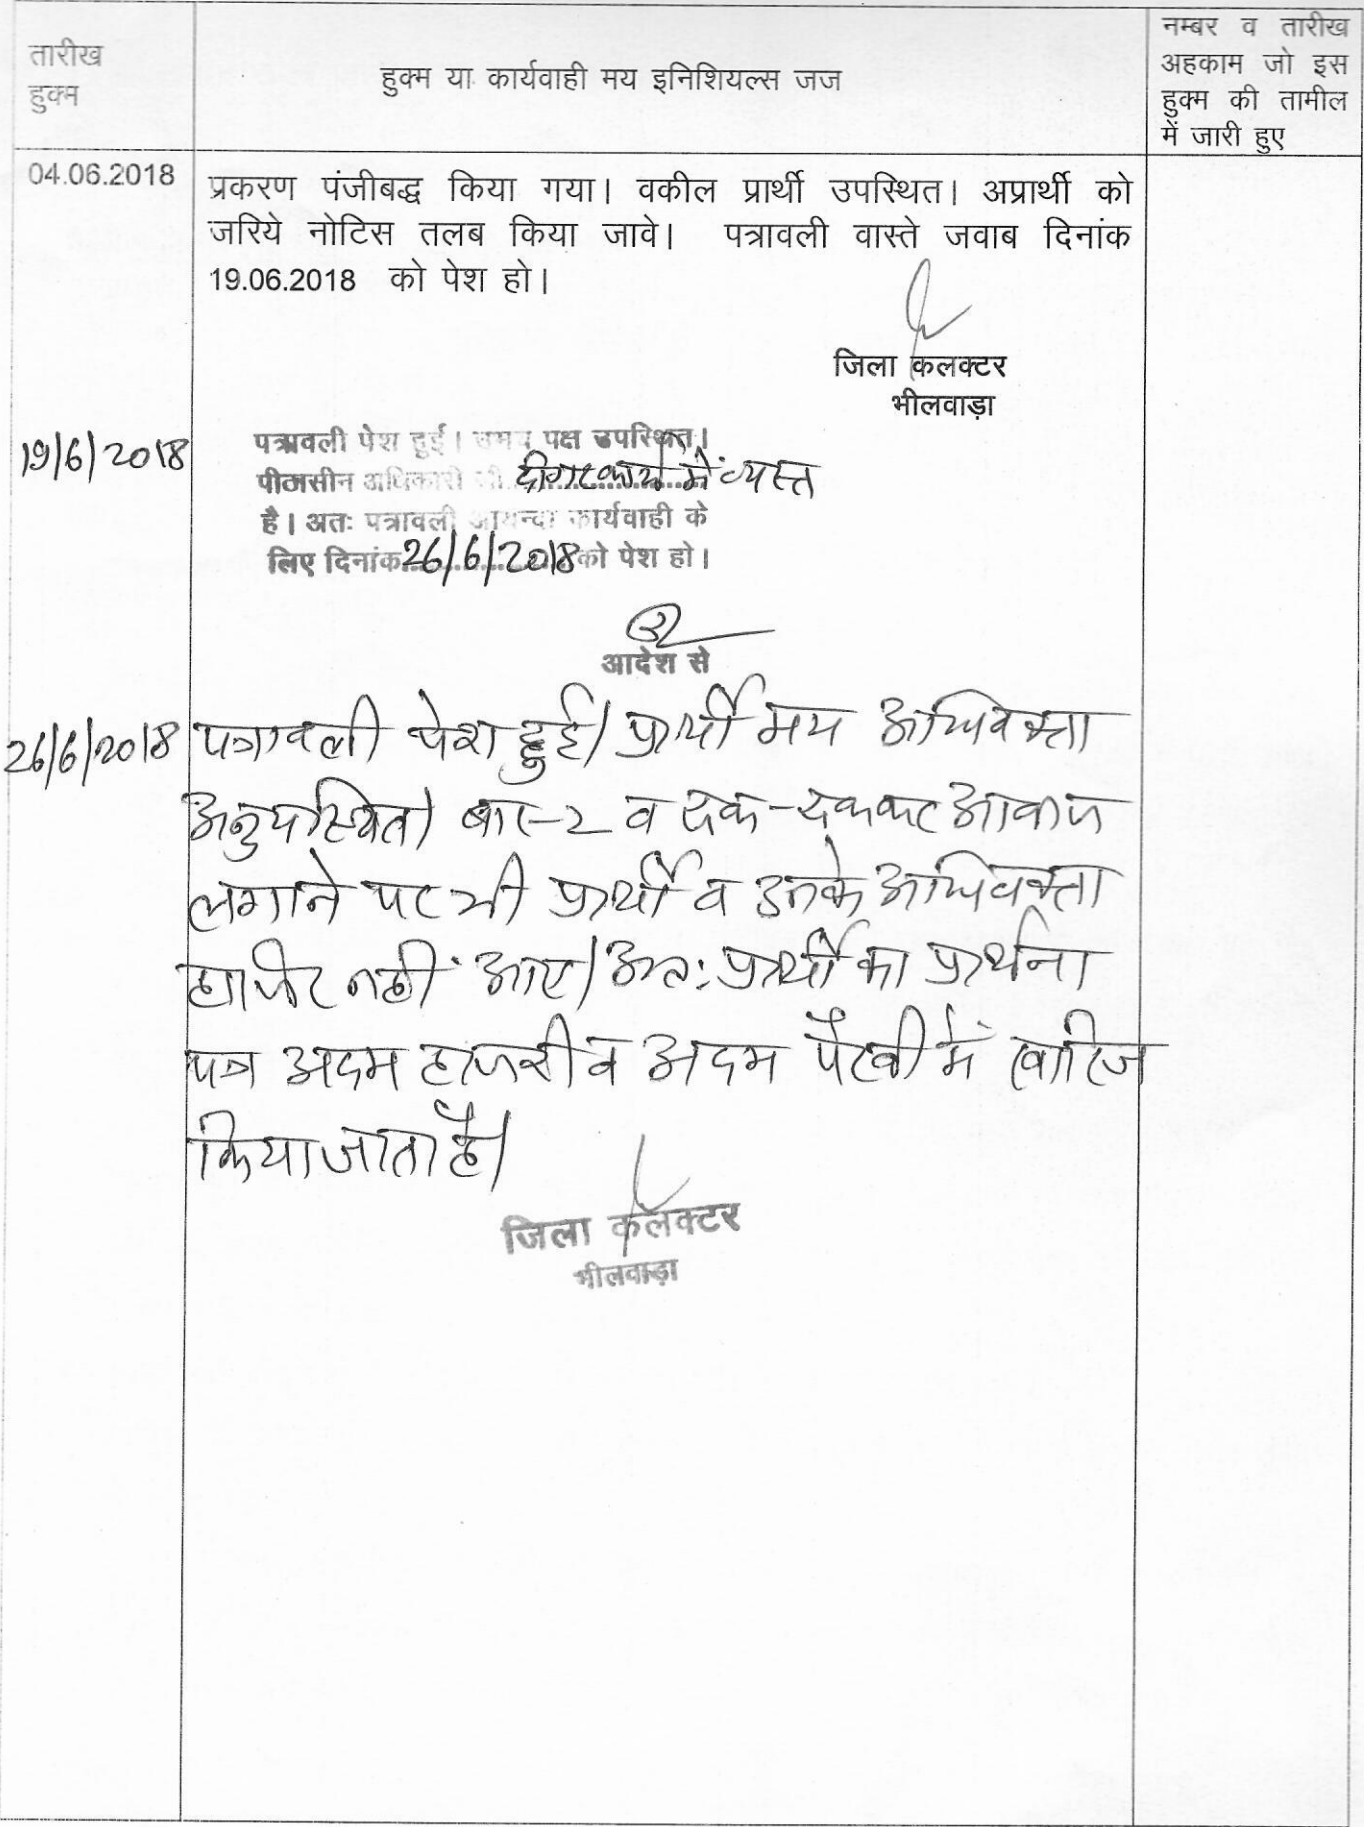 तारीख
हुक्म
हुक्म या कार्यवाही मय इनिशियल्स जज
नम्बर व तारीख
अहकाम जो इस
हुक्म की तामील
में जारी हुए
04.06.2018
प्रकरण पंजीबद्ध किया गया। वकील प्रार्थी उपस्थित। अप्रार्थी को
जरिये नोटिस तलब किया जावे। पत्रावली वास्ते जवाब दिनांक
19.06.2018 को पेश हो।
जिला कलक्टर
भीलवाड़ा
19/6/2018
पत्रावली पेश हुई। उभय पक्ष उपस्थित।
पीठासीन अधिकारी जी कार्य में व्यस्त
है। अतः पत्रावली आयन्दा कार्यवाही के
लिए दिनांक 26/6/2018 को पेश हो।
आदेश से
26/6/2018
पत्रावली पेश हुई। प्रार्थी मय अधिवक्ता
अनुपस्थित। बार-2 व रूक-रूककर आवाज
लगाने पर भी प्रार्थी व उनके अधिवक्ता
हाजिर नहीं आए। अतः प्रार्थी का प्रार्थना
पत्र अदम हाजरी व अदम पैरवी में खारिज
किया जाता है।
जिला कलक्टर
भीलवाड़ा